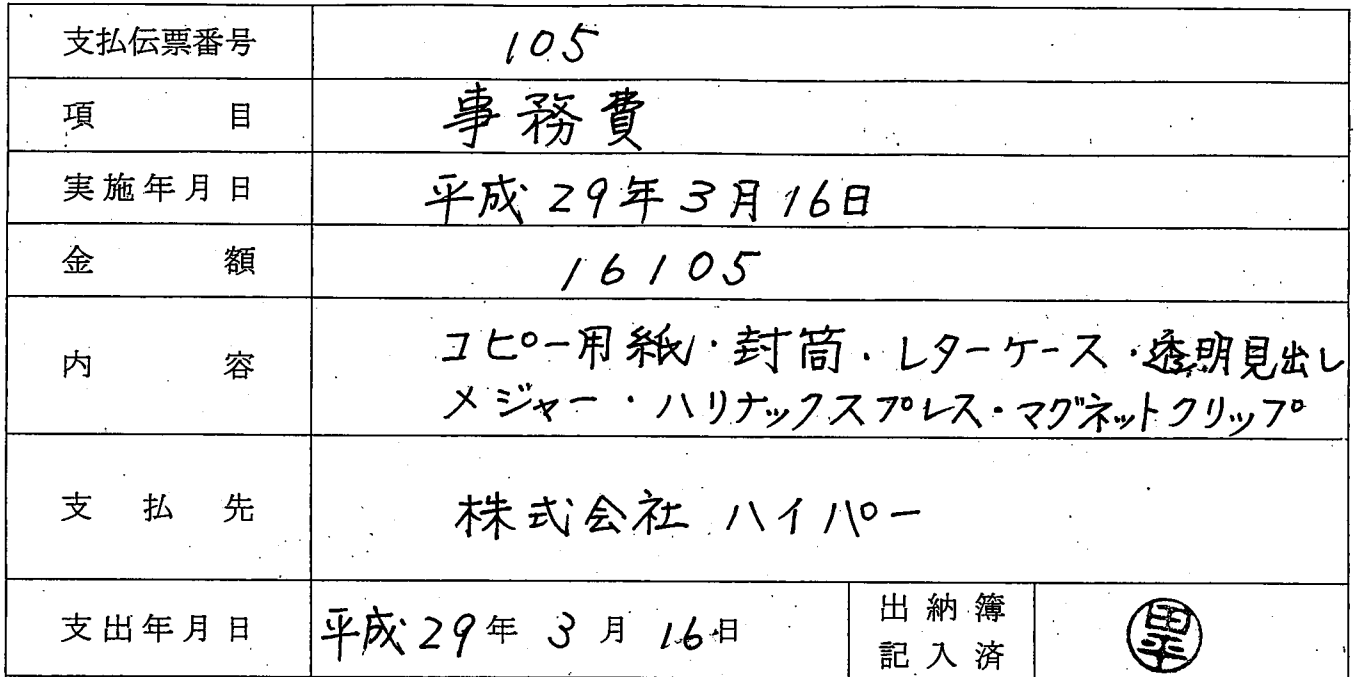 支払伝票番号 105
項目 事務費
実施年月日 平成29年3月16日
金額 16105
内容 コピー用紙・封筒・レターケース・透明見出し
メジャー・ハリナックスプレス・マグネットクリップ
支払先 株式会社 ハイパー
支出年月日 平成29年3月16日 出納簿
記入済